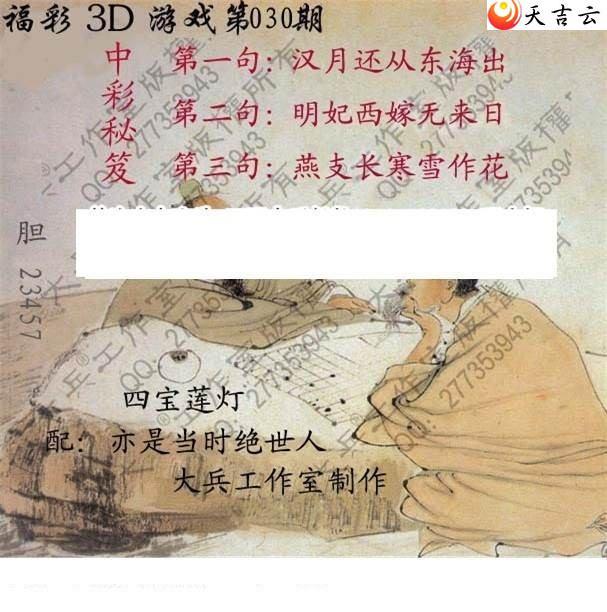 福彩 3D 游戏第030期
天吉云
中彩秘笈
第一句：汉月还从东海出
第二句：明妃西嫁无来日
第三句：燕支长寒雪作花
胆 23457
四宝莲灯
配：亦是当时绝世人
大兵工作室制作
大兵®工作室版权所有
QQ：277353943